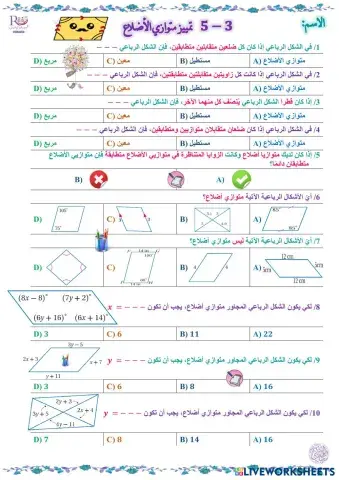 الاسم:
3 – 5 تمييز متوازي الأضلاع
1/ في الشكل الرباعي إذا كان كل ضلعين متقابلين متطابقين، فإن الشكل الرباعي ----
A) متوازي الأضلاع B) مستطيل C) معين D) مربع
2/ في الشكل الرباعي إذا كانت كل زاويتين متقابلتين متطابقتين، فإن الشكل الرباعي ----
A) متوازي الأضلاع B) مستطيل C) معين D) مربع
3/ إذا كان قطرا الشكل الرباعي ينصف كل منهما الآخر، فإن الشكل الرباعي ----
A) متوازي الأضلاع B) مستطيل C) معين D) مربع
4/ في الشكل الرباعي إذا كان ضلعان متقابلان متوازيين ومتطابقين، فإن الشكل الرباعي ----
A) متوازي الأضلاع B) مستطيل C) معين D) مربع
5/ إذا كان لديك متوازيا أضلاع وكانت الزوايا المتناظرة في متوازيي الأضلاع متطابقة فإن متوازيي الأضلاع
متطابقان دائما؟
A) B)
6/ أي الأشكال الرباعية الآتية متوازي أضلاع؟
A) B) C) D)
7/ أي الأشكال الرباعية الآتية ليس متوازي أضلاع؟
A) B) C) D)
12 cm
5cm
5cm
12 cm
8/ لكي يكون الشكل الرباعي المجاور متوازي أضلاع، يجب أن تكون x = ----
(8x – 8)° (7y + 2)°
(6y + 16)° (6x + 14)°
A) 22 B) 11 C) 6 D) 3
9/ لكي يكون الشكل الرباعي المجاور متوازي أضلاع، يجب أن تكون y = ----
3y – 5
2x + 3
x + 7
y + 11
A) 16 B) 8 C) 6 D) 3
10/ لكي يكون الشكل الرباعي المجاور متوازي أضلاع، يجب أن تكون y = ----
2y + 3
3y + 5
2x + 4
4y – 11
A) 16 B) 14 C) 8 D) 7
LIVEWORKSHEETS